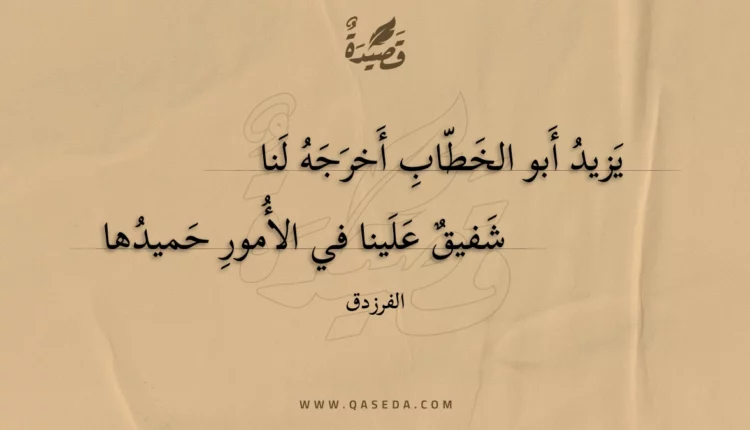 قَصِيدَةٌ
يَزيدُ أَبو الخَطّابِ أَخرَجَهُ لَنا
شَفيقٌ عَلَينا في الأُمورِ حَميدُها
الفرزدق
WWW.QASEDA.COM